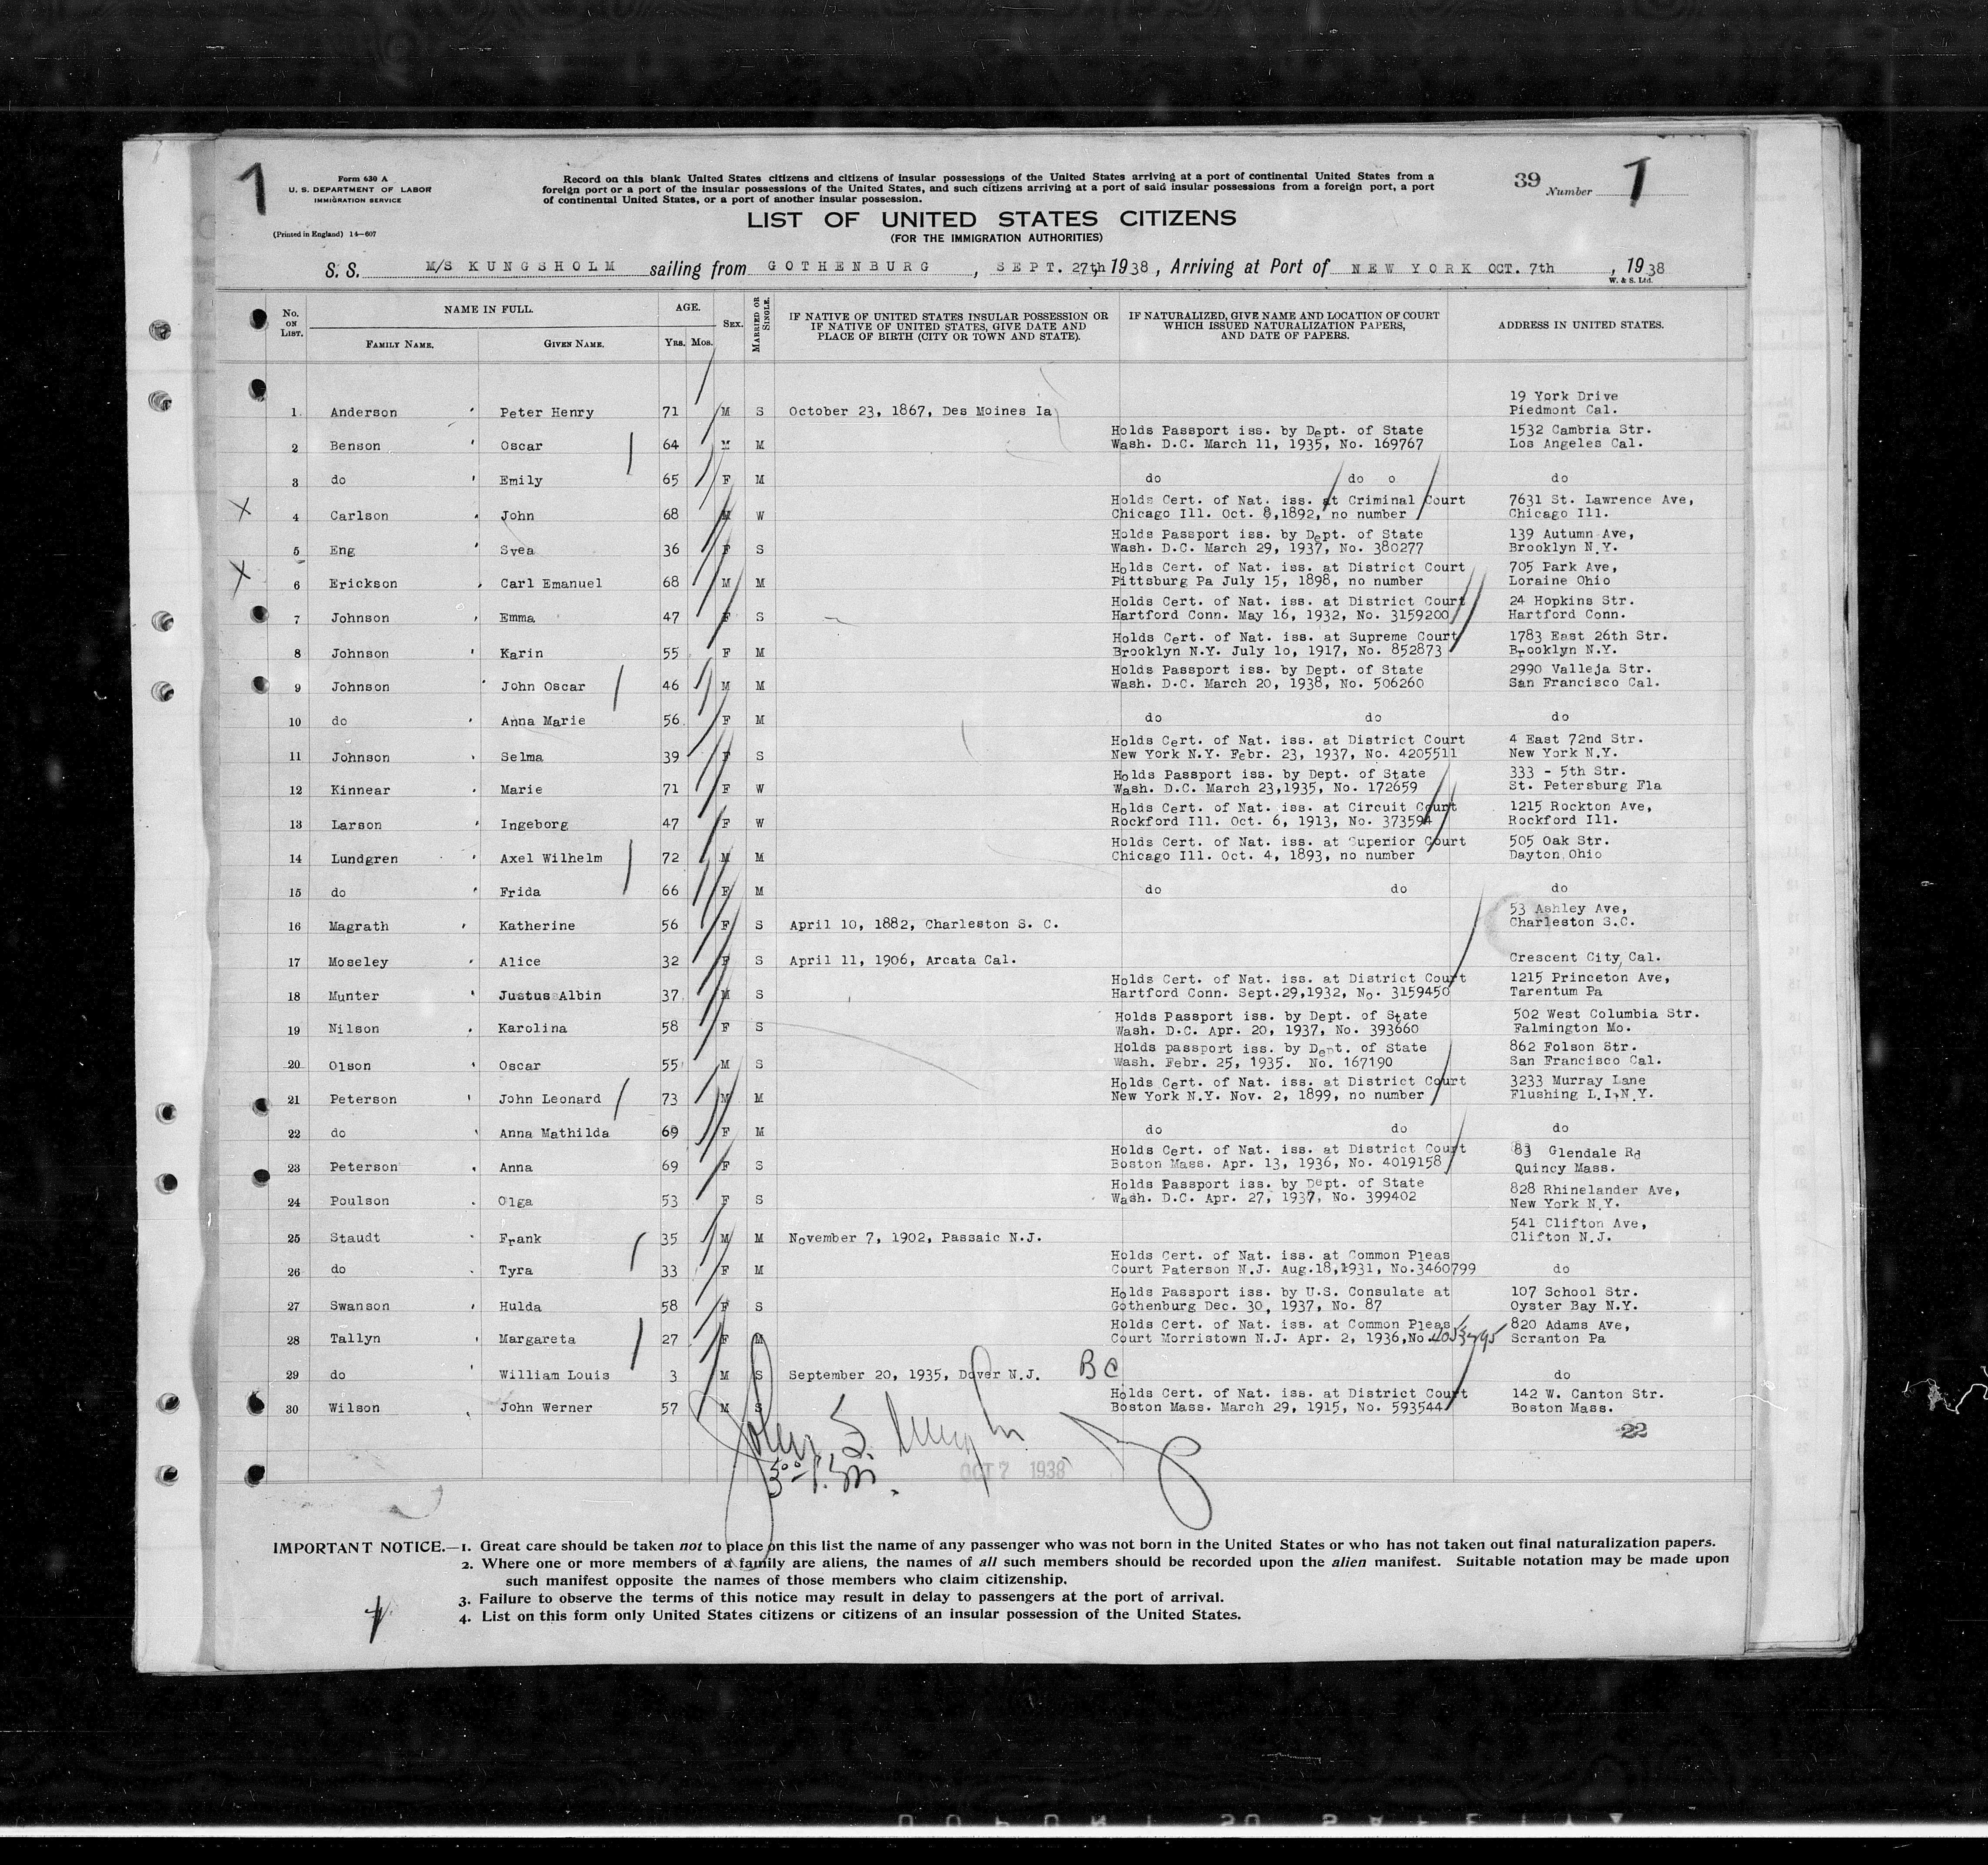 1
Form 630 A
U. S. DEPARTMENT OF LABOR
IMMIGRATION SERVICE
(Printed in England) 14—607
Record on this blank United States citizens and citizens of insular possessions of the United States arriving at a port of continental United States from a
foreign port or a port of the insular possessions of the United States, and such citizens arriving at a port of said insular possessions from a foreign port, a port
of continental United States, or a port of another insular possession.
39 Number 1
LIST OF UNITED STATES CITIZENS
(FOR THE IMMIGRATION AUTHORITIES)
S. S. M/S KUNGSHOLM sailing from GOTHENBURG, SEPT. 27th, 1938, Arriving at Port of NEW YORK OCT. 7th, 1938
W. & S. Ltd.
No. ON LIST. NAME IN FULL. FAMILY NAME. GIVEN NAME. AGE. YRS. MOS. SEX. MARRIED OR SINGLE.
IF NATIVE OF UNITED STATES INSULAR POSSESSION OR
IF NATIVE OF UNITED STATES, GIVE DATE AND
PLACE OF BIRTH (CITY OR TOWN AND STATE).
IF NATURALIZED, GIVE NAME AND LOCATION OF COURT
WHICH ISSUED NATURALIZATION PAPERS,
AND DATE OF PAPERS.
ADDRESS IN UNITED STATES.
19 York Drive
1 Anderson Peter Henry 71 M S October 23, 1867, Des Moines Ia Piedmont Cal.
Holds Passport iss. by Dept. of State 1532 Cambria Str.
2 Benson Oscar 64 M M Wash. D.C. March 11, 1935, No. 169767 Los Angeles Cal.
3 do Emily 65 F M do do o do
Holds Cert. of Nat. iss. at Criminal Court 7631 St. Lawrence Ave,
X 4 Carlson John 68 M W Chicago Ill. Oct. 8,1892, no number Chicago Ill.
Holds Passport iss. by Dept. of State 139 Autumn Ave,
5 Eng Svea 36 F S Wash. D.C. March 29, 1937, No. 380277 Brooklyn N.Y.
Holds Cert. of Nat. iss. at District Court 705 Park Ave,
X 6 Erickson Carl Emanuel 68 M M Pittsburg Pa July 15, 1898, no number Loraine Ohio
Holds Cert. of Nat. iss. at District Court 24 Hopkins Str.
7 Johnson Emma 47 F S Hartford Conn. May 16, 1932, No. 3159200 Hartford Conn.
Holds Cert. of Nat. iss. at Supreme Court 1783 East 26th Str.
8 Johnson Karin 55 F M Brooklyn N.Y. July 10, 1917, No. 852873 Brooklyn N.Y.
Holds Passport iss. by Dept. of State 2990 Valleja Str.
9 Johnson John Oscar 46 M M Wash. D.C. March 20, 1938, No. 506260 San Francisco Cal.
10 do Anna Marie 56 F M do do do
Holds Cert. of Nat. iss. at District Court 4 East 72nd Str.
11 Johnson Selma 39 F S New York N.Y. Febr. 23, 1937, No. 4205511 New York N.Y.
Holds Passport iss. by Dept. of State 333 - 5th Str.
12 Kinnear Marie 71 F W Wash. D.C. March 23,1935, No. 172659 St. Petersburg Fla
Holds Cert. of Nat. iss. at Circuit Court 1215 Rockton Ave,
13 Larson Ingeborg 47 F W Rockford Ill. Oct. 6, 1913, No. 373594 Rockford Ill.
Holds Cert. of Nat. iss. at Superior Court 505 Oak Str.
14 Lundgren Axel Wilhelm 72 M M Chicago Ill. Oct. 4, 1893, no number Dayton Ohio
15 do Frida 66 F M do do do
53 Ashley Ave,
16 Magrath Katherine 56 F S April 10, 1882, Charleston S. C. Charleston S.C.
17 Moseley Alice 32 F S April 11, 1906, Arcata Cal. Crescent City, Cal.
Holds Cert. of Nat. iss. at District Court 1215 Princeton Ave,
18 Munter Justus Albin 37 M S Hartford Conn. Sept.29,1932, No. 3159450 Tarentum Pa
Holds Passport iss. by Dept. of State 502 West Columbia Str.
19 Nilson Karolina 58 F S Wash. D.C. Apr. 20, 1937, No. 393660 Falmington Mo.
Holds passport iss. by Dept. of State 862 Folson Str.
20 Olson Oscar 55 M S Wash. Febr. 25, 1935. No. 167190 San Francisco Cal.
Holds Cert. of Nat. iss. at District Court 3233 Murray Lane
21 Peterson John Leonard 73 M M New York N.Y. Nov. 2, 1899, no number Flushing L.I.N.Y.
22 do Anna Mathilda 69 F M do do do
Holds Cert. of Nat. iss. at District Court 83 Glendale Rd
23 Peterson Anna 69 F S Boston Mass. Apr. 13, 1936, No. 4019158 Quincy Mass.
Holds Passport iss. by Dept. of State 828 Rhinelander Ave,
24 Poulson Olga 53 F S Wash. D.C. Apr. 27, 1937, No. 399402 New York N.Y.
541 Clifton Ave,
25 Staudt Frank 35 M M November 7, 1902, Passaic N.J. Clifton N.J.
Holds Cert. of Nat. iss. at Common Pleas
26 do Tyra 33 F M Court Paterson N.J. Aug.18,1931, No.3460799 do
Holds Passport iss. by U.S. Consulate at 107 School Str.
27 Swanson Hulda 58 F S Gothenburg Dec. 30, 1937, No. 87 Oyster Bay N.Y.
Holds Cert. of Nat. iss. at Common Pleas 820 Adams Ave,
28 Tallyn Margareta 27 F M Court Morristown N.J. Apr. 2, 1936,No. Scranton Pa
29 do William Louis 3 M S September 20, 1935, Dover N.J. BC do
Holds Cert. of Nat. iss. at District Court 142 W. Canton Str.
30 Wilson John Werner 57 M S Boston Mass. March 29, 1915, No. 593544 Boston Mass.
22
OCT 7 1938
IMPORTANT NOTICE.—1. Great care should be taken not to place on this list the name of any passenger who was not born in the United States or who has not taken out final naturalization papers.
2. Where one or more members of a family are aliens, the names of all such members should be recorded upon the alien manifest. Suitable notation may be made upon
such manifest opposite the names of those members who claim citizenship.
3. Failure to observe the terms of this notice may result in delay to passengers at the port of arrival.
4. List on this form only United States citizens or citizens of an insular possession of the United States.